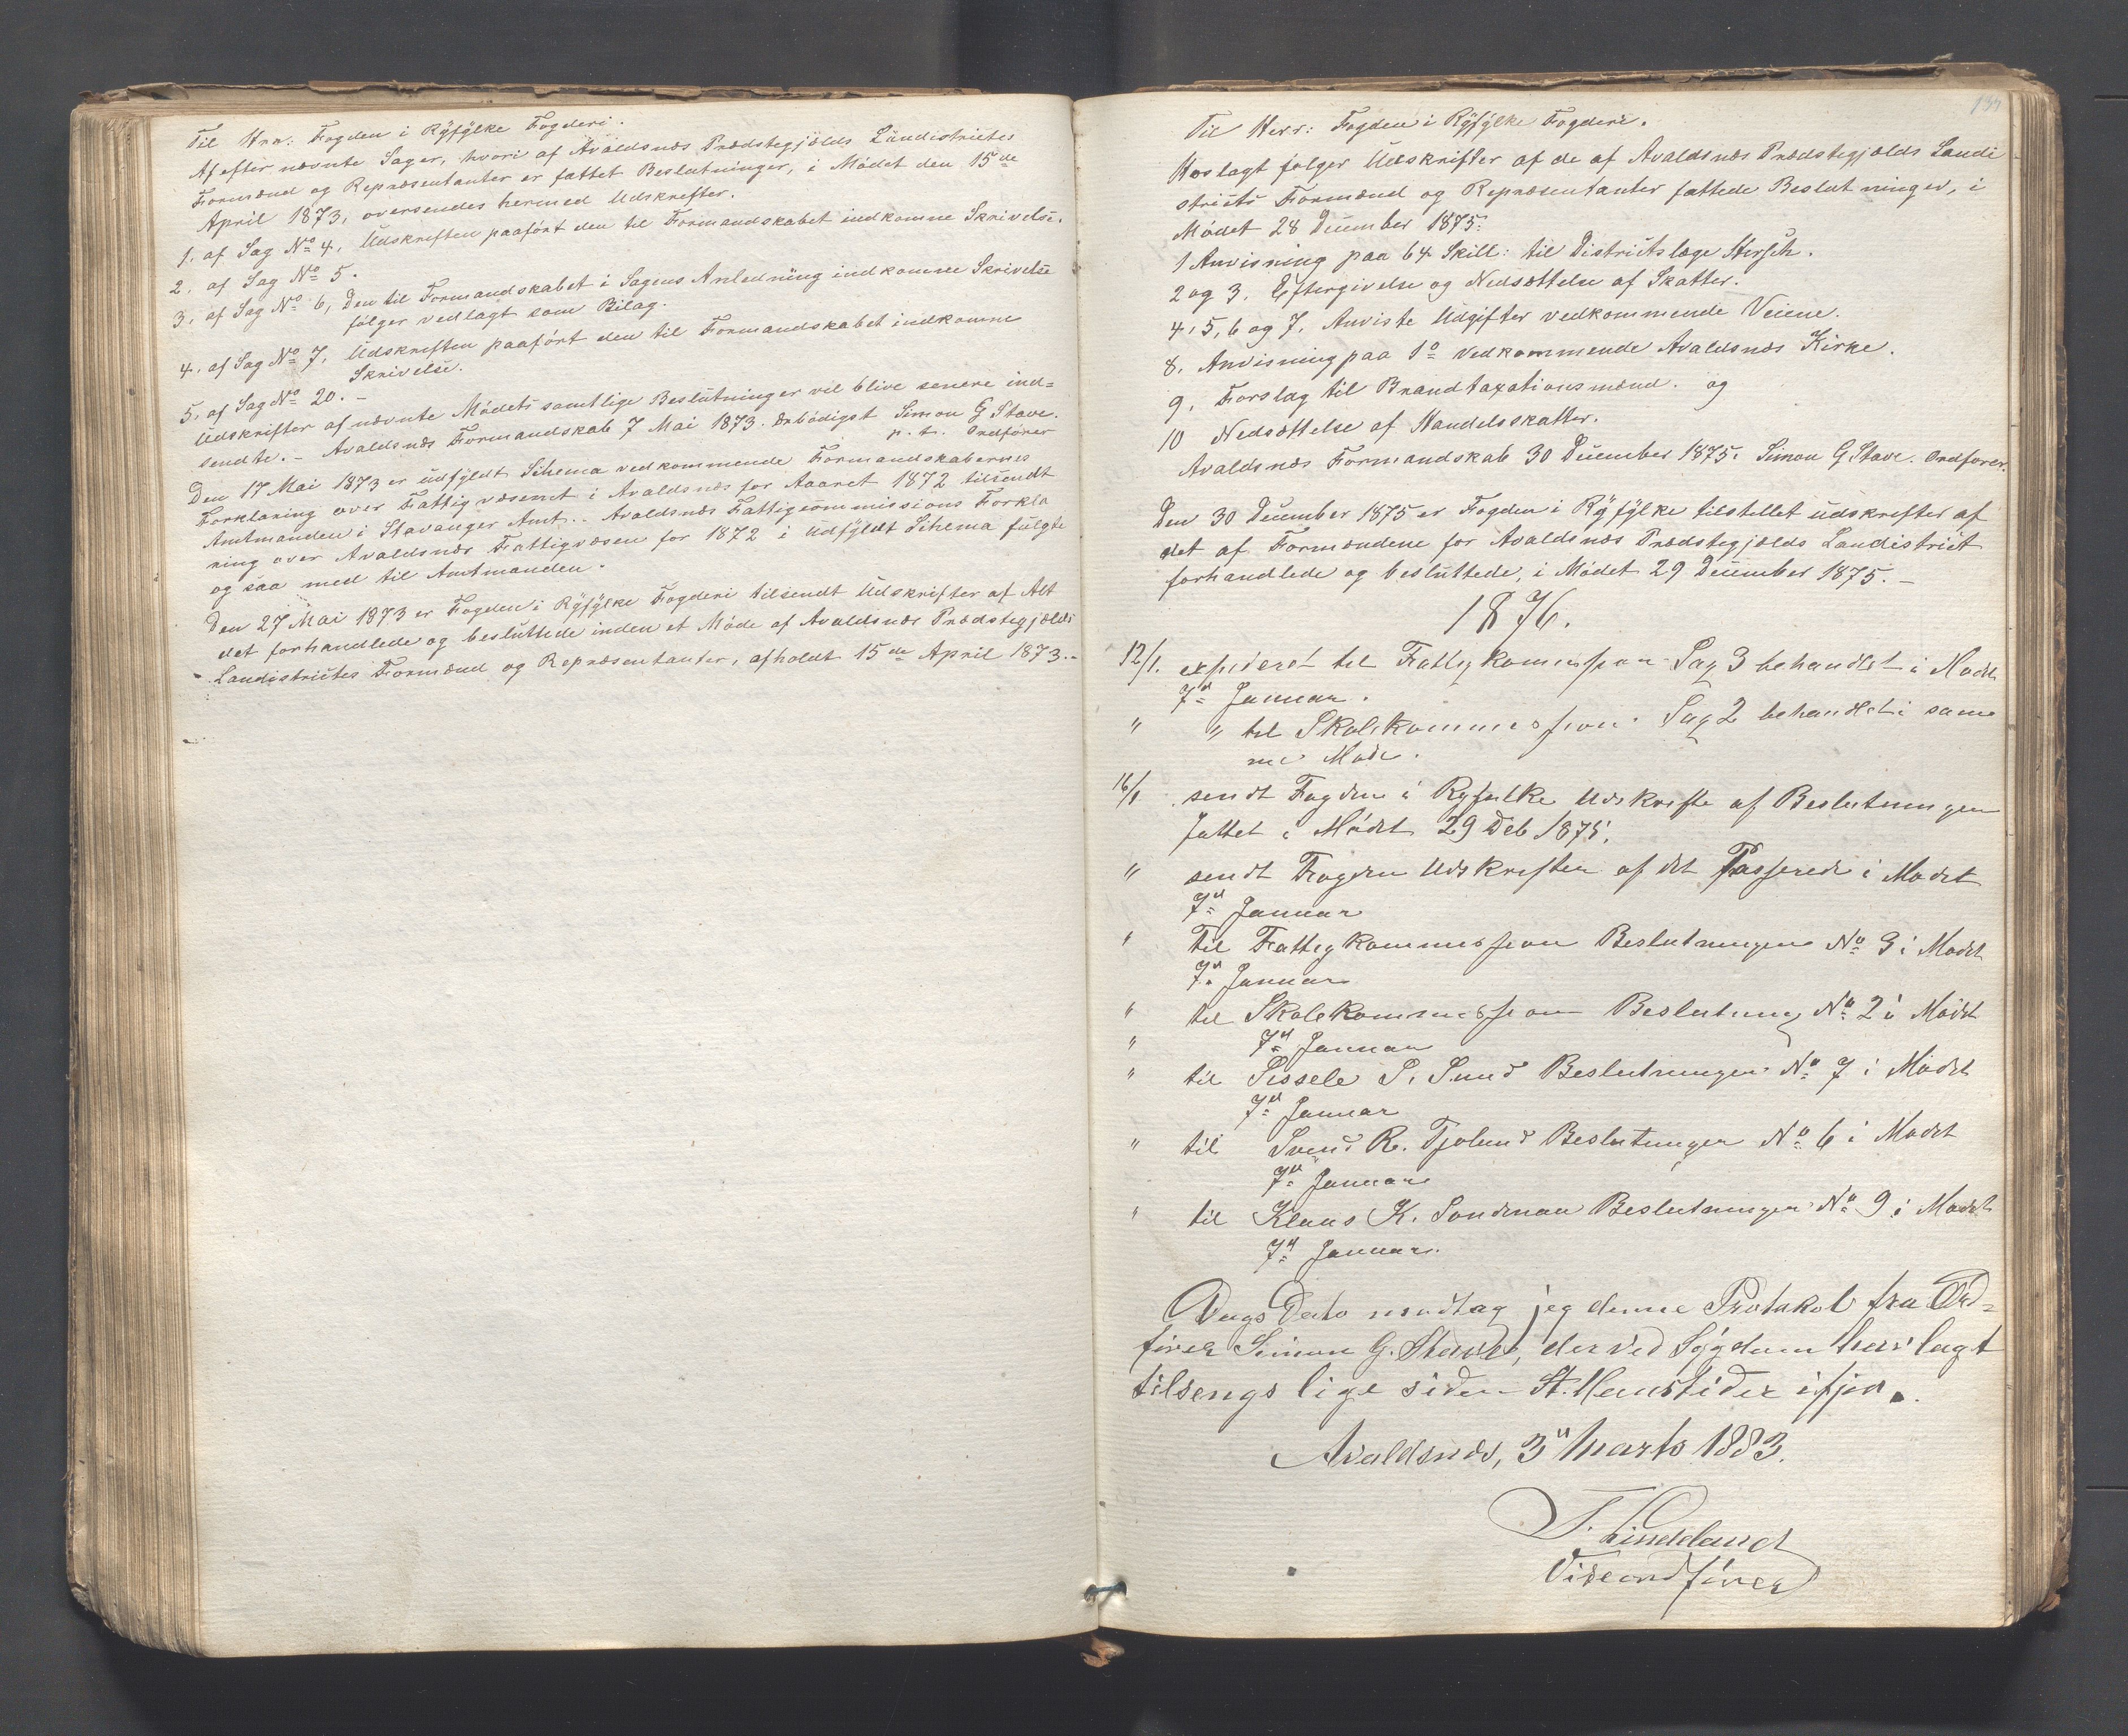 Til Hrr: Fogden i Ryfylke Fogderi.
Af efter nævnte Sager, hvori af Avaldsnæs Prædstegjælds Landistrictes
Formænd og Repræsentanter er fattet Beslutninger, i Mödet den 15de
April 1873, oversendes hermed Udskrifter.
1. af Sag No 4, Udskriften paafört den til Formandskabet indkomne Skrivelse.
2. af Sag No 5.
3. af Sag No 6, Den til Formandskabet i Sagens Anledning indkomne Skrivelse
fölger vedlagt som Bilag.
4. af Sag No 7. Udskriften paafört den til Formandskabet indkomne
Skrivelse.
5. af Sag No 20. –
Udskrifter af nævnte Mödets samtlige Beslutninger vil blive senere ind=
sendte. – Avaldsnæs Formandskab 7 Mai 1873. ærbödigst Simon G Stave.
p. t. Ordförer
Den 17 Mai 1873 er udfyldt Schema vedkommende Formandskabernes
Forklaring over Fattigvæsenet i Avaldsnæs for Aaret 1872 tilsendt
Amtmanden i Stavanger Amt. – Avaldsnæs Fattigcommissions Forkla
ning over Avaldsnæs Fattigvæsen for 1872 i udfyldt Schema fulgte
og saa med til Amtmanden.
Den 27 Mai 1873 er Fogden i Ryfylke Fogderi tilsendt Udskrifter af Alt
det forhandlede og besluttede inden et Möde af Avaldsnæs Prædstegjælds
Landistrictes Formænd og Repræsentanter, afholdt 15de April 1873. –
Til Herr: Fogden i Ryfylke Fogderi.
Hoslagt følger Udskrifter af de af Avaldsnæs Prædstegjælds Landi
stricts Formænd og Repræsentanter fattede Beslutninger, i
Mödet 28 December 1875:
1 Anvisning paa 64 Skill: til Districtslæge Hirsch.
2 og 3. Eftergivelse og Nedsættelse af Skatter.
4, 5, 6 og 7, Anviste Udgifter vedkommende Veiene.
8. Anvisning paa 1o vedkommende Avaldsnæs Kirke.
9. Forslag til Brandtaxationsmænd. og
10 Nedsættelse af Handelsskatter.
Avaldsnæs Formandskab 30 December 1875. Simon G Stave. Ordfører.
Den 30 December 1875 er Fogden i Ryfylke tilstellet udskrifter af
det af Formændene for Avaldsnæs Prædstegjælds Landistrict
forhandlede og besluttede, i Mödet 29 December 1875. –
1876.
12/1. expideret til Fattigkommission Sag 3 behandlet i Mödet
7de Januar.
" " til Skolekommission Sag 2 behandlet i sam
me Möde.
16/1 sendt Fogden i Ryfulke Udskrifte af Beslutningen
fattet i Mödet 29 Deb 1875.
" sendt Fogden Udskriften af det Passerede i Mödet
7de Januar
" Til Fattigkommission Beslutningen No 3 i Mödet
7de Januar
" til Skolekommission Beslutning No 2 i Mödet
" 7de Januar
" til Sissele S. Sund Beslutningen No 7 i Mödet
7de Januar
" til Svend R. Beslutningen No 6 i Mödet
7de Januar
" til Klaus K. Beslutningen No 9 i Mödet
7de Januar.
Dags Dato modtog jeg denne Protokol fra Ord=
fører Simon G. Stave, der ved Sygdom har lagt
tilsengs lige siden St. Hanstider ifjor.
Avaldsnæs, 3de Marts 1883.
T. Lindeland
Viseordfører